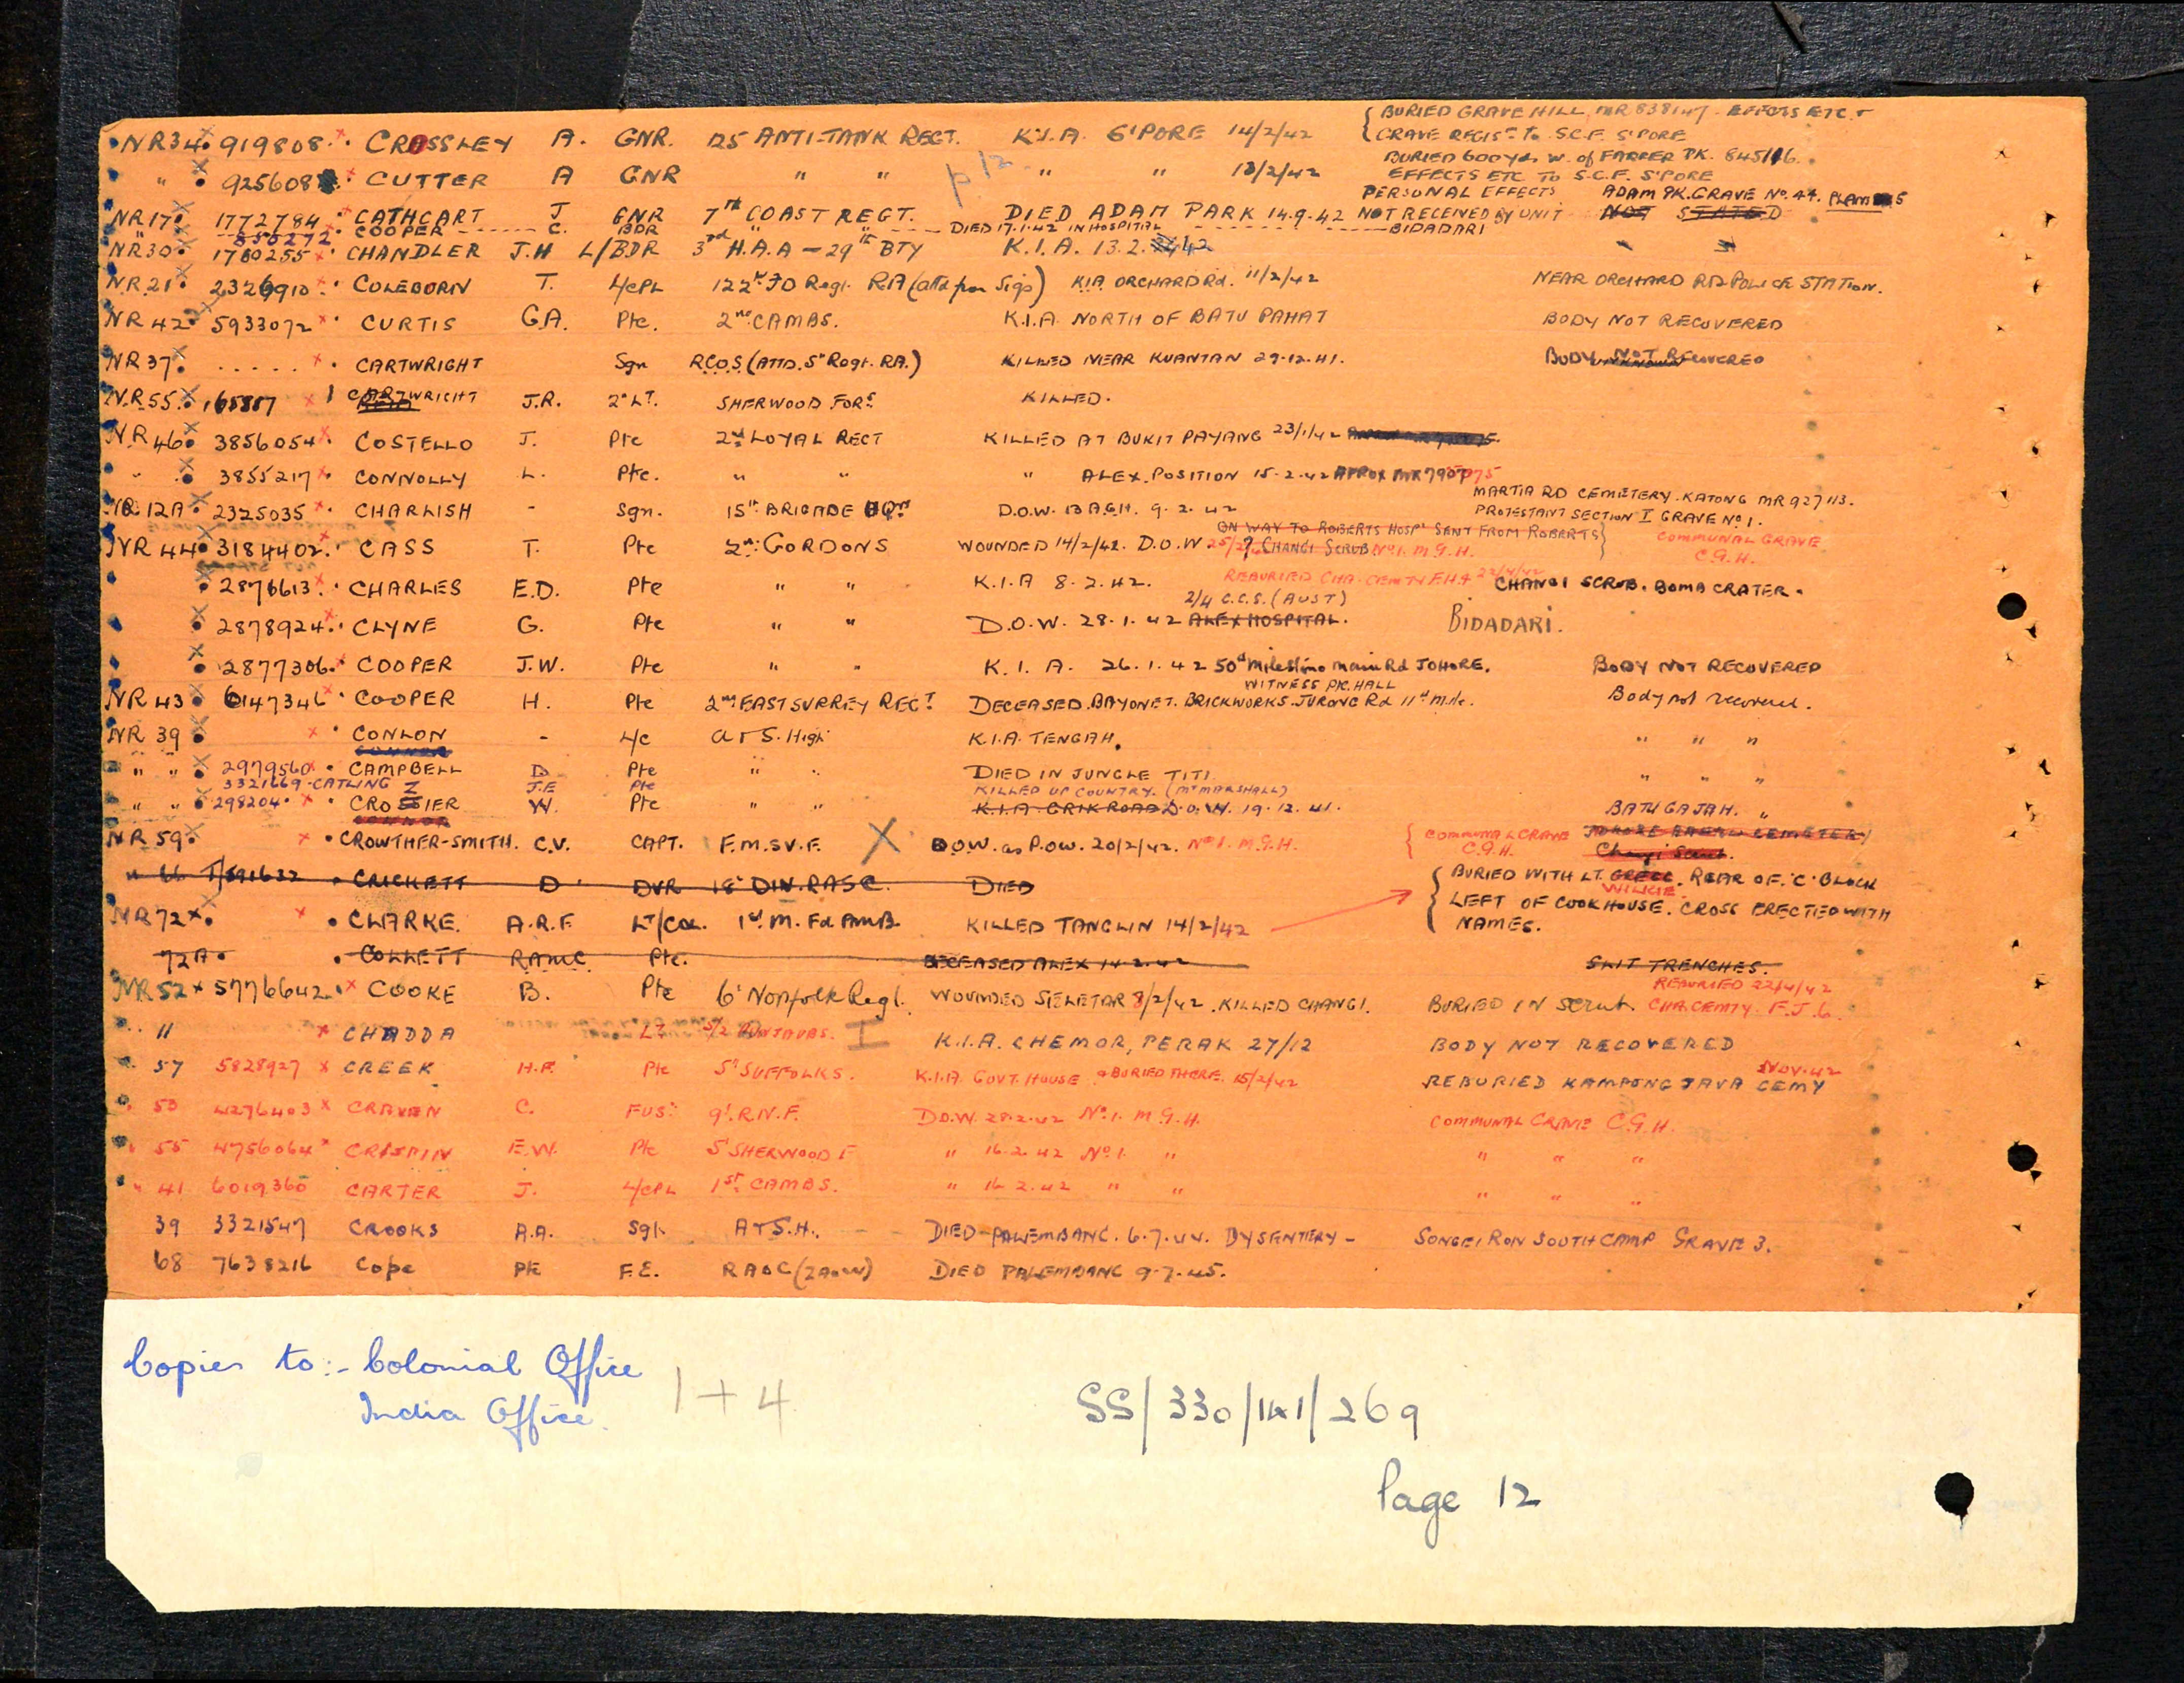 { BURIED GRAVE HILL, MR 838147. EFFECTS ETC. +
NR34 919808 CROSSLEY A. GNR. 125 ANTI-TANK REGT. K.I.A. S'PORE 14/2/42 { GRAVE REGIST. TO S.C.F. S'PORE
p 12 BURIED 600 yds W. of FARRER PK. 845116.
" 925608 CUTTER A GNR " " " " 13/2/42 EFFECTS ETC TO S.C.F. S'PORE
PERSONAL EFFECTS ADAM PK. GRAVE No. 44. PLAN 5
NR17 1772784 CATHCART J GNR 7TH COAST REGT. DIED ADAM PARK 14.9.42 NOT RECEIVED BY UNIT NOT STATED
" 850272 COOPER C. BDR " " DIED 17.1.42 IN HOSPITAL BIDADARI
NR30 1780255 CHANDLER J.H L/BDR 3rd H.A.A - 29th BTY K.I.A. 13.2.42
NR.21 2326910 COLEBORN T. L/CPL 122nd FD Regt. RA (attd from Sigs) KIA ORCHARD Rd. 11/2/42 NEAR ORCHARD RD POLICE STATION.
NR 42 5933072 CURTIS G.A. Pte. 2nd CAMBS. K.I.A. NORTH OF BATU PAHAT BODY NOT RECOVERED
NR 37 ..... CARTWRIGHT Sgn R.C.O.S (ATTD. 5th Regt. RA.) KILLED NEAR KUANTAN 29.12.41. BODY NOT RECOVERED
NR55 CARTWRIGHT J.R. 2nd LT. SHERWOOD FORS KILLED.
NR 46 3856054 COSTELLO J. Pte 2nd LOYAL REGT KILLED AT BUKIT PAYANG 23/1/42
" 3855217 CONNOLLY L. Pte. " " " ALEX. POSITION 15.2.42 APPROX MR
MARTIA RD CEMETERY. KATONG MR 927113.
NR 12A 2325035 CHARLISH - Sgn. 15th BRIGADE D.O.W. 13 A.G.H. 9.2.42 PROTESTANT SECTION I GRAVE No 1.
ON WAY TO ROBERTS HOSP! SENT FROM ROBERTS}
NR 44 3184402 CASS T. Pte 2nd GORDONS WOUNDED 14/2/42. D.O.W. ? CHANGI SCRUB No 1. M.G.H. COMMUNAL GRAVE
C.G.H.
REBURIED CHA. CEMTY F.H.4 22/4/42
2876613 CHARLES E.D. Pte " " K.I.A 8.2.42. CHANGI SCRUB. BOMB CRATER.
2/4 C.C.S. (AUST)
2878924 CLYNE G. Pte " " D.O.W. 28.1.42 ALEX HOSPITAL. BIDADARI.
2877306 COOPER J.W. Pte " " K.I.A. 26.1.42 50th Milestone main Rd JOHORE. BODY NOT RECOVERED
WITNESS Pte. HALL
NR 43 6147346 COOPER H. Pte 2nd EAST SURREY REGT. DECEASED. BAYONET. BRICKWORKS. JURONG Rd 11th mile. Body not recovered.
NR 39 CONLON - L/C A & S. High K.I.A. TENGAH. " " "
" " 2979560 CAMPBELL D Pte " " DIED IN JUNGLE TITI " " "
3321669 CATLING J.E Pte KILLED UP COUNTRY. (Mr MARSHALL)
" " 298204 CROSSIER W. Pte " " K.I.A. GRIK ROAD D.O.W. 19.12.41. BATU GAJAH. "
CONNOR
NR 59 CROWTHER-SMITH. C.V. CAPT. F.M.S.V.F. X D.O.W. as P.O.W. 20/2/42. No 1. M.G.H. { COMMUNAL GRAVE JOHORE BAHRU CEMETERY
C.G.H. Changi Scrub.
" 66 CRICKETT D DVR 18th DIV. RASC. DIED { BURIED WITH LT. GREGG. REAR OF 'C' BLOCK
WILKIE
NR 72 CLARKE. A.R.F. LT/COL. 1st M. Fd AMB KILLED TANGLIN 14/2/42 LEFT OF COOKHOUSE. CROSS ERECTED WITH
NAMES.
72A. COLLETT RAMC Pte. DECEASED ALEX 14.2.42 SLIT TRENCHES.
REBURIED 22/4/42
NR 52 5776642 COOKE B. Pte 6th Norfolk Regt. WOUNDED SELETAR 8/2/42. KILLED CHANGI. BURIED IN scrub. CHA. CEMTY. F.J.6.
" 11 CHADDA LT. 5/2 PUNJAUBS. I K.I.A. CHEMOR, PERAK 27/12 BODY NOT RECOVERED
Nov. 42
" 57 5828927 CREEK H.F. Pte 5th SUFFOLKS. K.I.A. GOVT. HOUSE & BURIED THERE. 15/2/42 REBURIED KAMPONG JAVA CEMY
" 53 4276403 CRAVEN C. FUS. 9th R.N.F. D.O.W. 28.2.42 No 1. M.G.H. COMMUNAL GRAVE C.G.H.
" 55 4756064 CRISPIN E.W. Pte 5th SHERWOOD F " 16.2.42 No 1. " " " "
" 41 6019360 CARTER J. L/CPL 1ST. CAMBS. " 16.2.42 " " " " "
39 3321547 CROOKS A.A. Sgt. A & S.H. - DIED - PALEMBANG. 6.7.44. DYSENTERY - SONGEI RON SOUTH CAMP GRAVE 3.
68 7638216 Cope Pte F.E. RAOC DIED PALEMBANG 9.7.45.
Copies to:- Colonial Office
India Office.
1 + 4
SS/330/141/269
Page 12